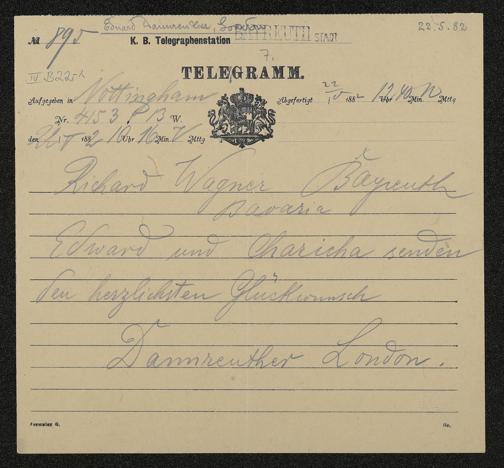 Edward Dannreuther, London
22.5.82
№ 895
K. B. Telegraphenstation BAYREUTH STADT
7.
TELEGRAMM.
IV B 225
Aufgegeben in Nottingham
Abgefertigt 22/V 1882 12 Uhr 40 Min. N Mttg
Nr. 4153 P 13 W.
den 22/V 1882 10 Uhr 16 Min. V Mttg
Richard Wagner Bayreuth
Bavaria
Edward und Charicha senden
den herzlichsten Glückwunsch
Dannreuther London.
Formular G.